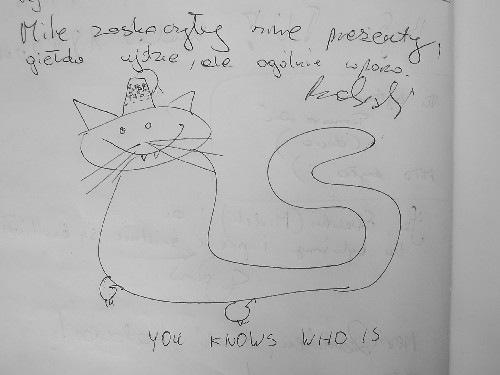 Miłe zaskoczyły mnie prezenty,
giełda ujdzie, ale ogólnie
YOU KNOWS WHO IS